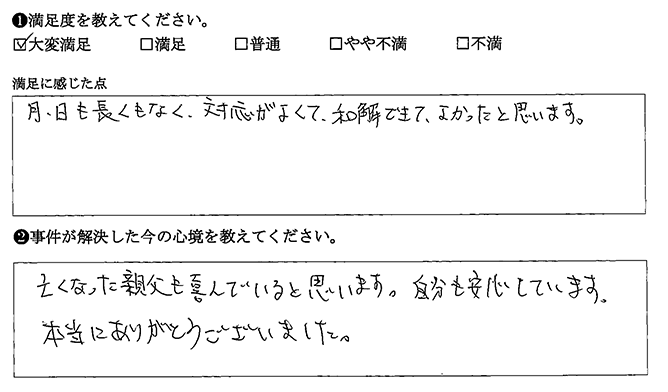 ❶満足度を教えてください。
☑大変満足 □満足 □普通 □やや不満 □不満
満足に感じた点
月、日も長くもなく、対応がよくて、和解できて、よかったと思います。
❷事件が解決した今の心境を教えてください。
亡くなった親父も喜んでいると思います。自分も安心しています。
本当にありがとうございました。